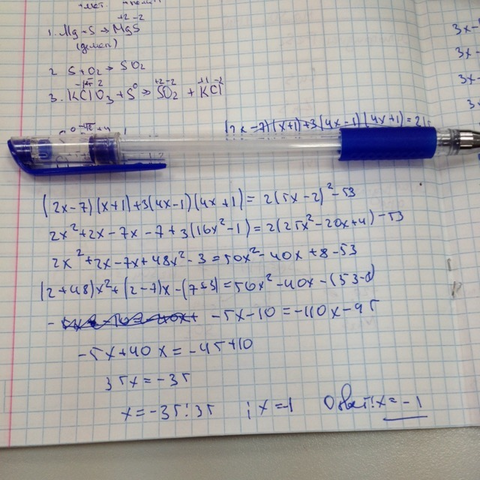 1. Mg+S→MgS
+2-2
2. S+O₂→SO₂
3. KClO₃+S⁰→SO₂+KCl
3x-
(2x-7)(x+1)+3(4x-1)(4x+1)=2(5x-2)²-53
2x²+2x-7x-7+3(16x²-1)=2(25x²-20x+4)-53
2x²+2x-7x+48x²-3=50x²-40x+8-53
(2+48)x²+(2-7)x-(7+3)=50x²-40x-(53-8)
-5x-10=-40x-45
-5x+40x=-45+10
35x=-35
x=-35:35 ; x=-1 Ответ: x=-1